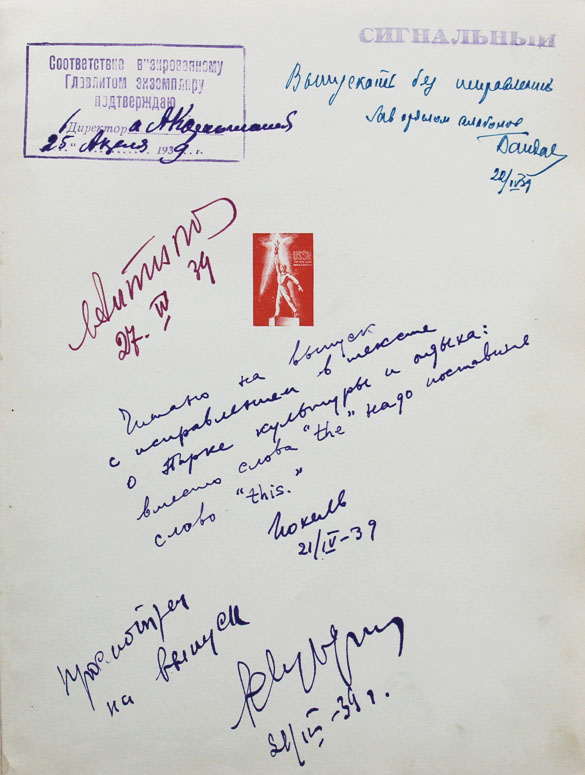 СИГНАЛЬНЫЙ
Соответствие визированному
Главлитом экземпляру
подтверждаю
Директор
25 " Апреля 1939
Выпускать без исправлений
20/IV 39
USSR
27. IV 39
Читано на выпуск
с исправлением в тексте
о Парке культуры и отдыха:
вместо слова "the" надо поставить
слово "this."
21/IV-39
Просмотрен
на выпуск
21/IV-39 г.